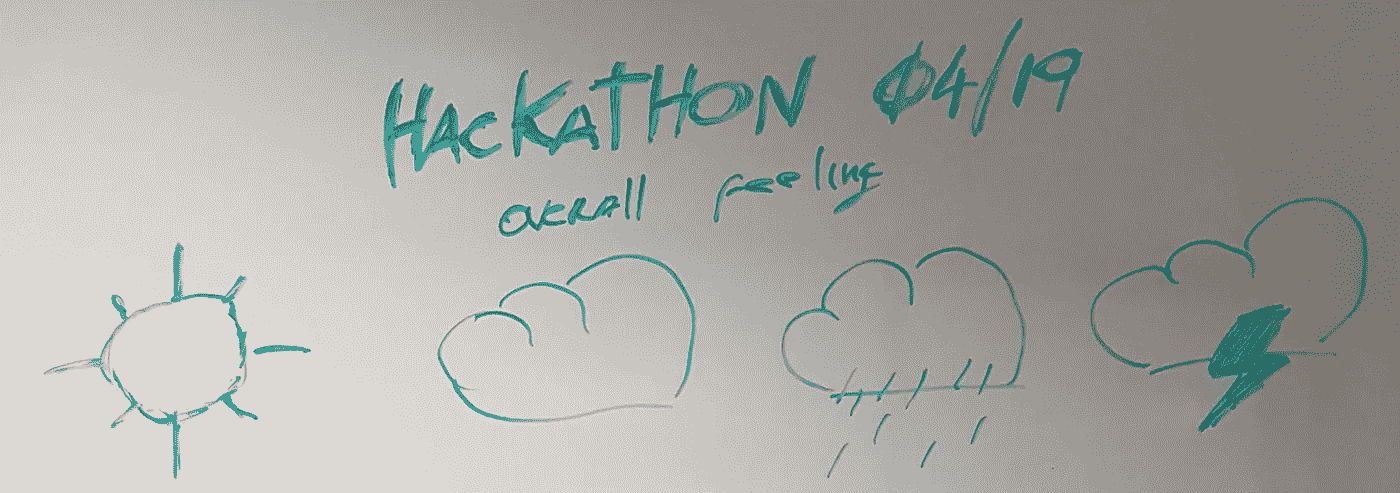 HACKATHON 04/19
OVERAll feeling